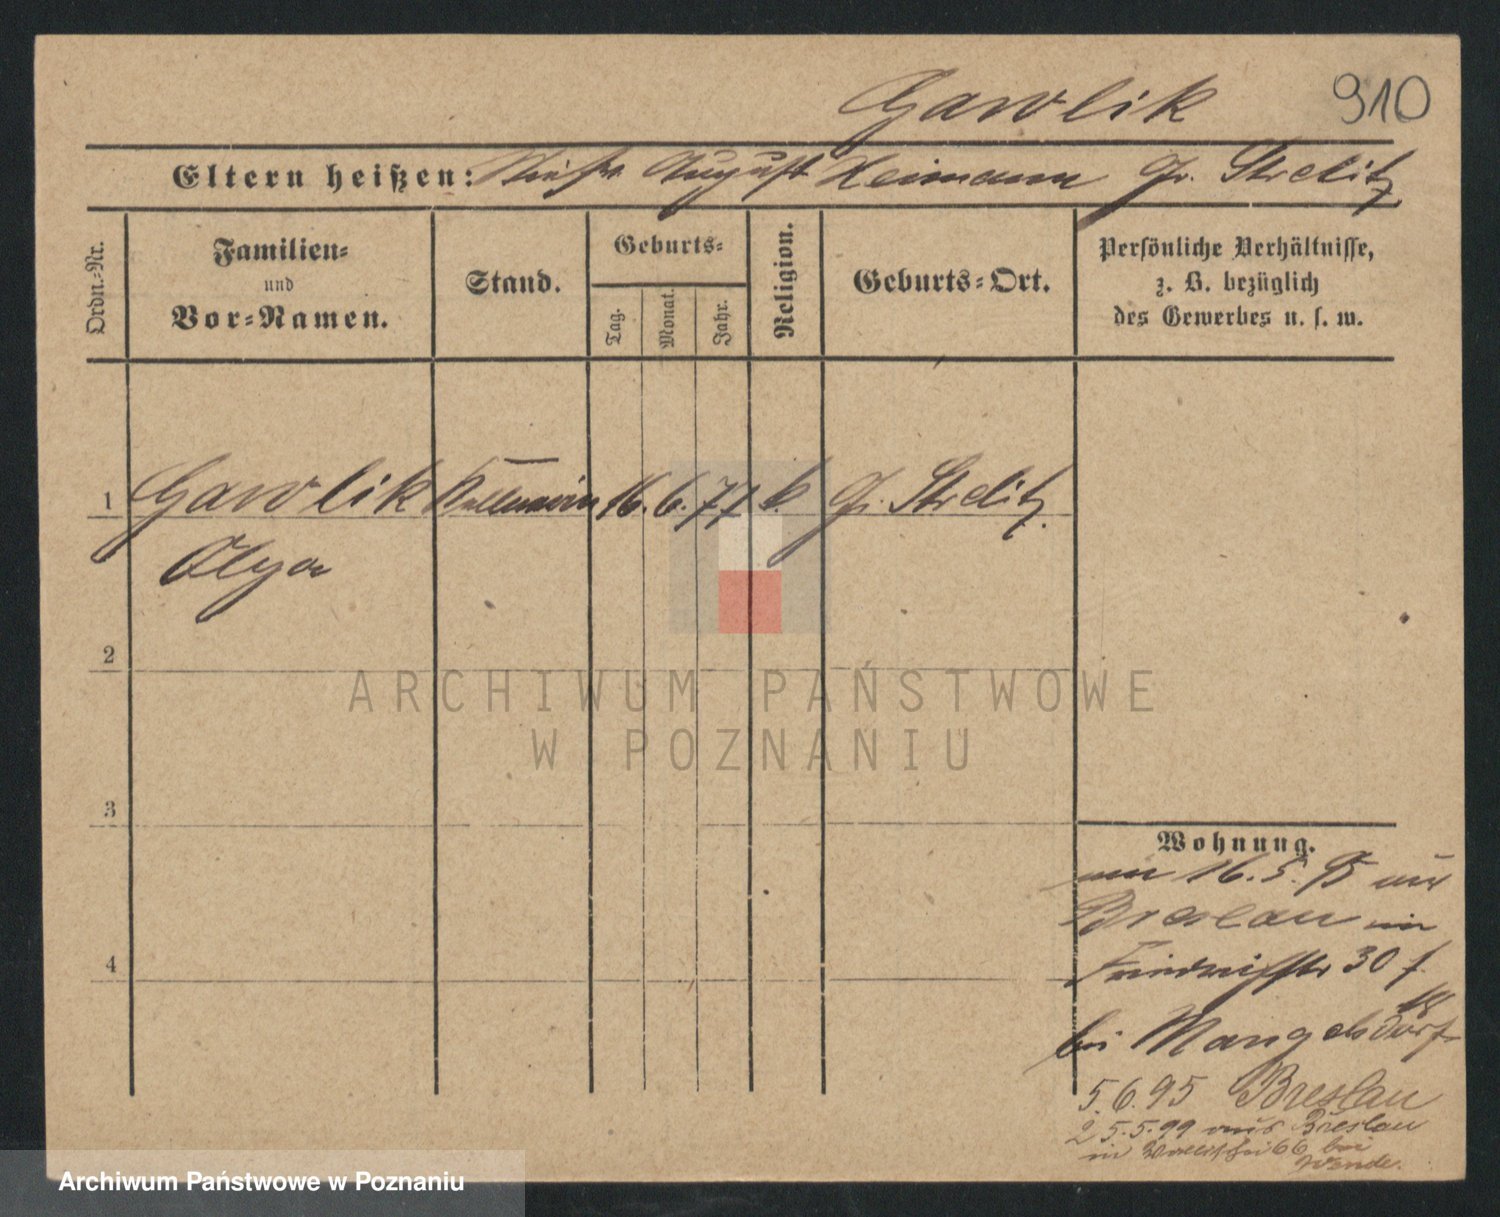 Gawlik 910
Eltern heißen: August Heimann Gr. Strelitz
Ordn.-Nr.
Familien-
und
Vor-Namen.
Stand.
Geburts-
Tag.
Monat.
Jahr.
Religion.
Geburts-Ort.
Persönliche Verhältnisse,
z. B. bezüglich
des Gewerbes u. s. w.
1 Gawlik Kellnerin 16. 6. 77 k. Gr. Strelitz
Olga
2
3
4
Wohnung.
am 16. 5. 95 aus
Breslau in
Friedrichstr 30 f.
bei Mangelsdorf
5. 6. 95 Breslau
25. 5. 99 aus Breslau
in 66 bei
Wende.
ARCHIWUM PAŃSTWOWE
W POZNANIU
Archiwum Państwowe w Poznaniu